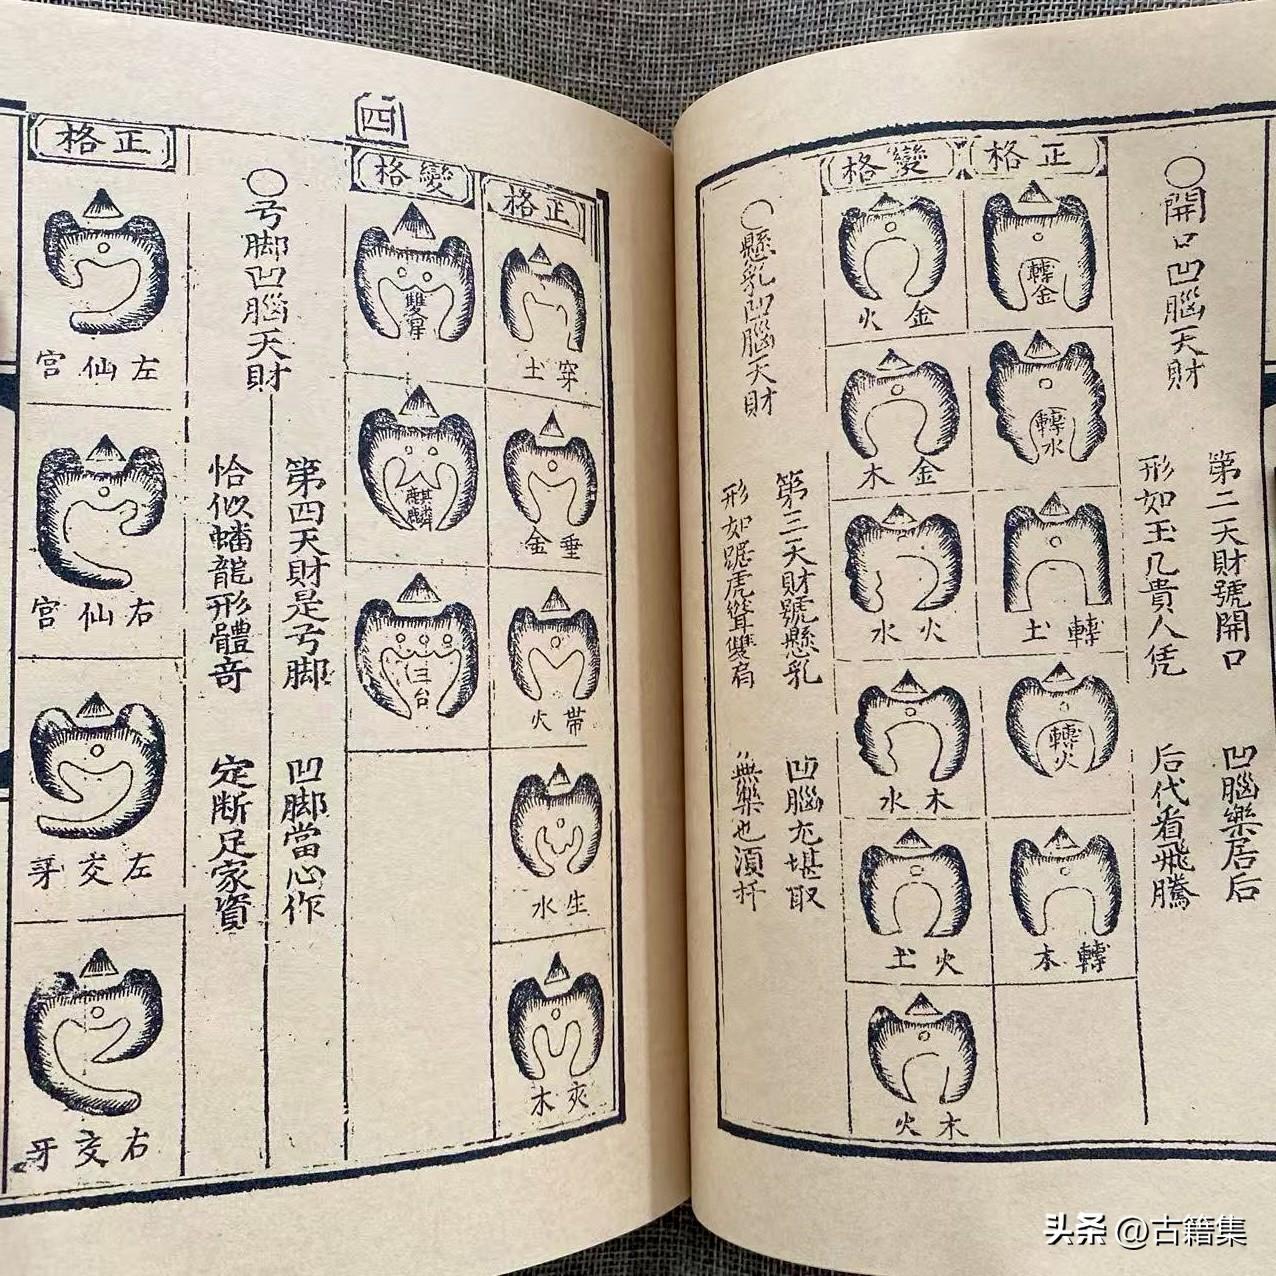 〇開口凹腦天財
第二天財號開口
凹腦樂居后
形如玉几貴人凭
后代看飛騰
正格
轉金
轉水
轉土
轉火
轉木
變格
金火
金木
火水
木水
火土
木火
〇懸乳凹腦天財
第三天財號懸乳
凹腦尤堪取
形如踞虎聳雙肩
無樂也須扦
正格
穿土
垂金
帶火
生水
夾木
變格
雙星
麒麟
三台
四
〇弓脚凹腦天財
第四天財是弓脚
凹脚當心作
恰似蟠龍形體奇
定斷足家資
正格
左仙宮
右仙宮
左交牙
右交牙
头条 @古籍集